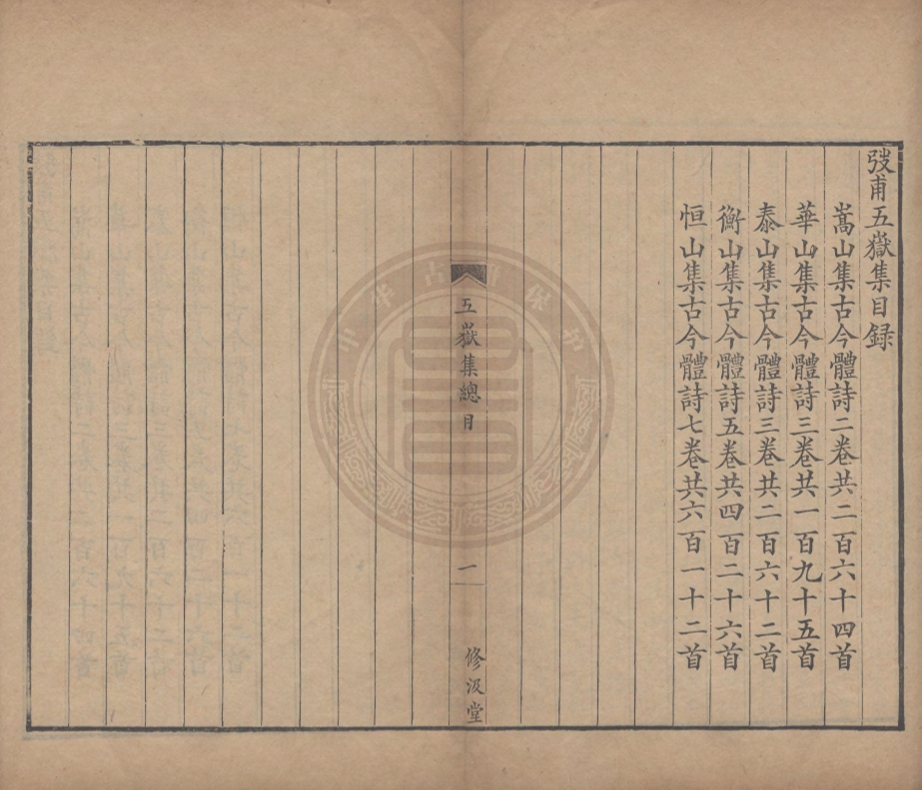 弢甫五嶽集目録
嵩山集古今體詩二卷共二百六十四首
華山集古今體詩三卷共一百九十五首
泰山集古今體詩三卷共二百六十二首
衡山集古今體詩五卷共四百二十六首
恒山集古今體詩七卷共六百一十二首
五嶽集總目
一
修汲堂